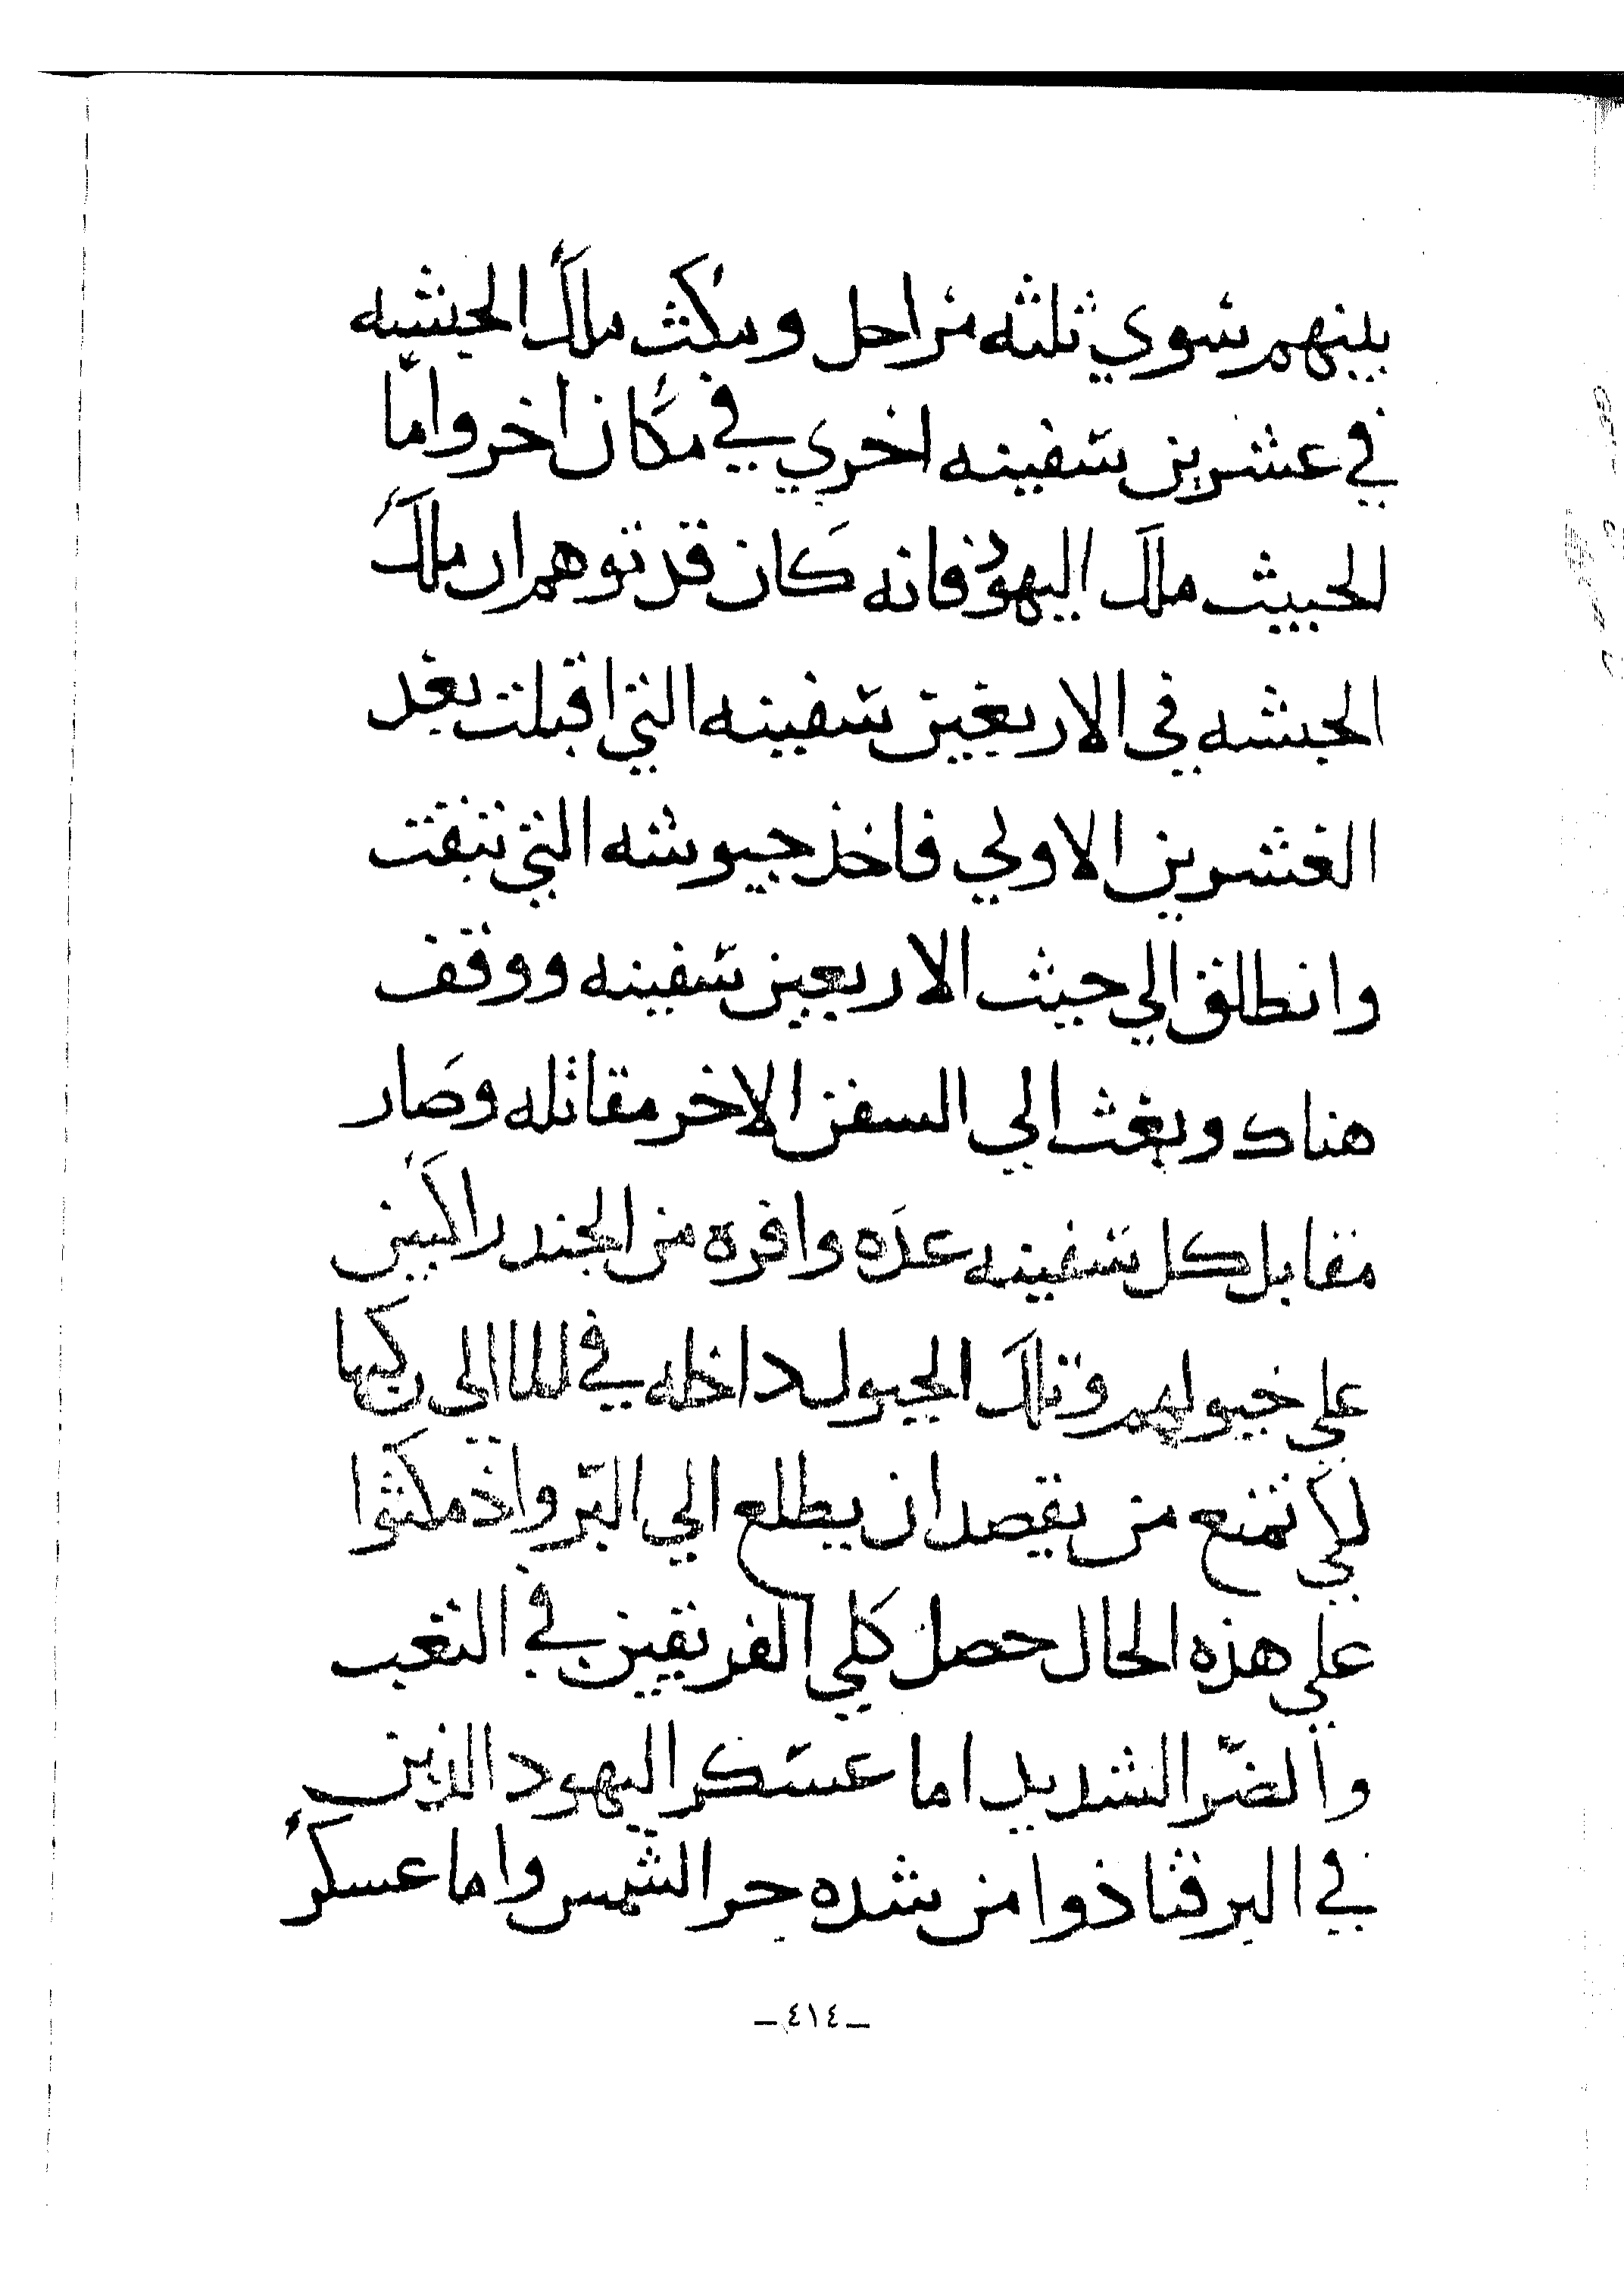 بينهم سوي ثلثه مراحل ومكث ملك الحبشه
في عشرين سفينه اخري في مكان اخر وامّا
الخبيث ملك اليهود فانه كان قد توهم ان ملك
الحبشه في الاربعين سفينه التي اقبلت بعد
العشرين الاولي فاخذ جيوشه التي تبقت
وانطلق الي حيث الاربعين سفينه ووقف
هناك وبعث الي السفن الاخر مقاتله وصار
مقابل كل سفينه عده وافره من الجند راكبين
علي خيولهم وتلك الخيول داخله في الما الى ركبها
لكي تمنع من يقصد ان يطلع الي البّر واذ مكثوا
علي هذه الحال حصل كلي الفريقين في التعب
والضّر الشديد اما عسكر اليهود الذين
في البر فتاذوا من شده حر الشمس واما عسكر
_٤١٤_